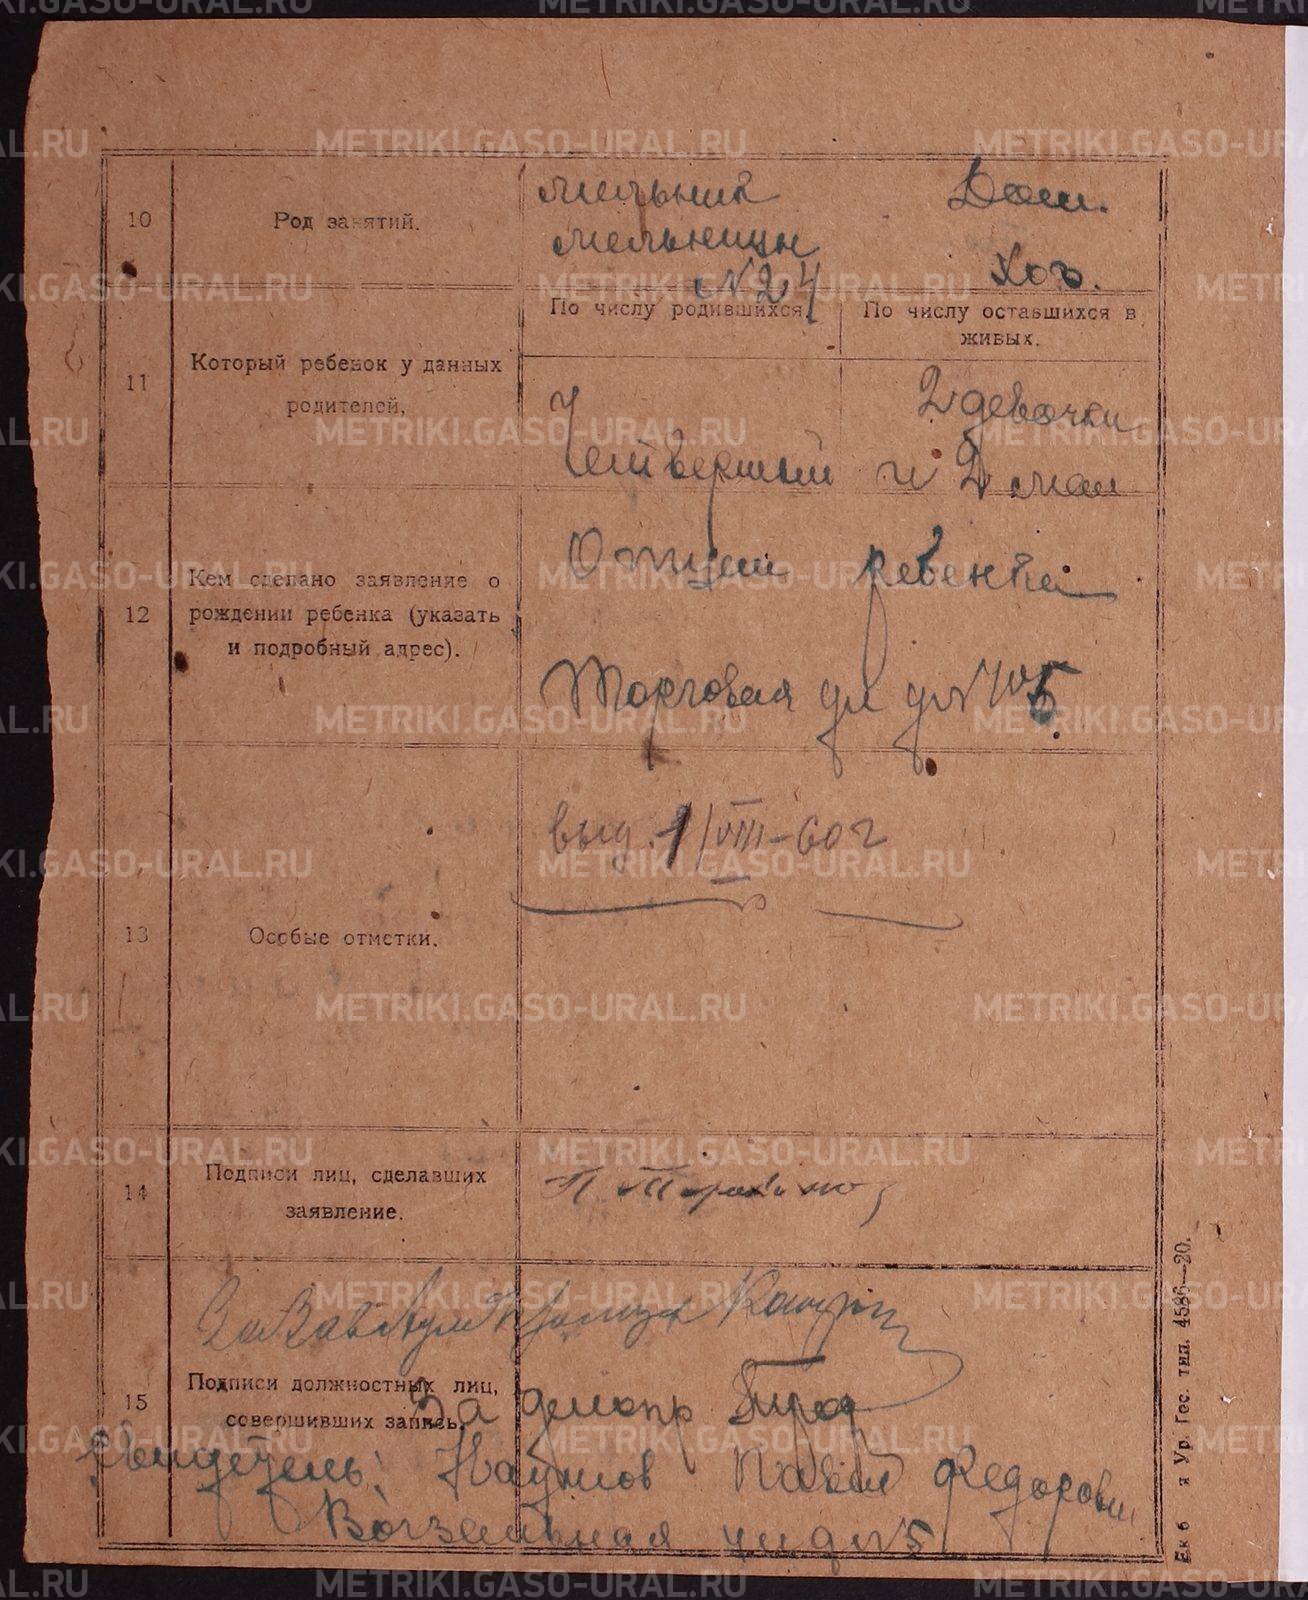 10
Род занятий.
мельник
мельницы
№ 24
Дом.
Хоз.
По числу родившихся.
По числу оставшихся в
живых.
11
Который ребенок у данных
родителей.
Четвертый
2 девочки
и 2 мал
12
Кем сделано заявление о
рождении ребенка (указать
и подробный адрес).
Отцем ребенка
Торговая ул д №
13
Особые отметки.
выд. 1/VIII-60 г
14
Подписи лиц, сделавших
заявление.
15
Подписи должностных лиц,
совершивших запись.
За делопр
Свидетель: Наумов Павел Федорович
Вогзальная ул д № 5
я Ур. Гос. тип. 4586—20.
METRIKI.GASO-URAL.RU